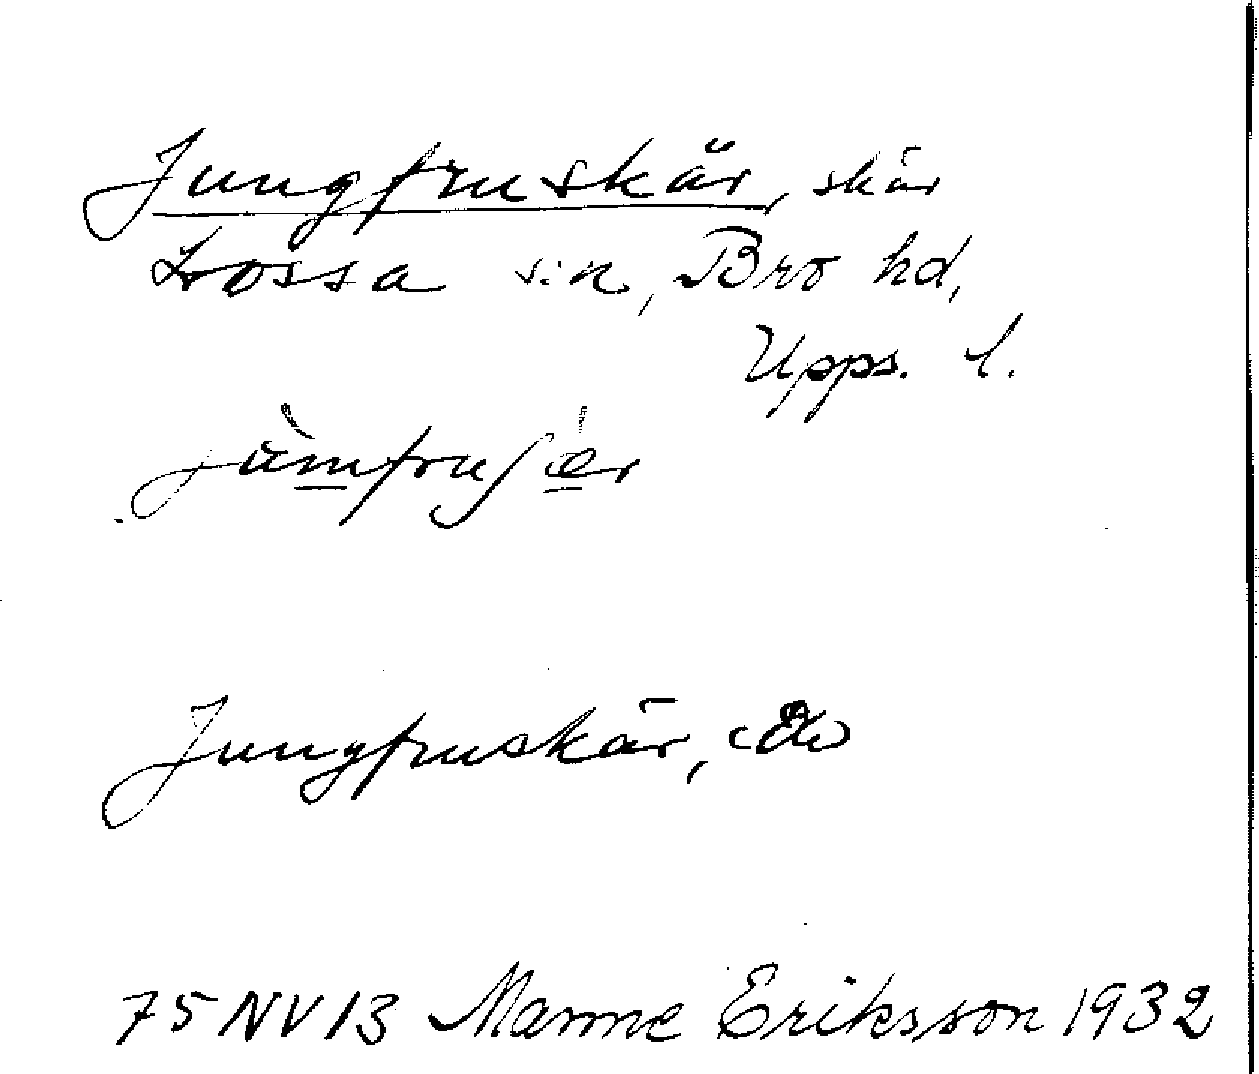 Jungfruskär, skär
Lossa s:n, Bro hd,
Upps. l.
Jungfruskär,
75 NV 13 Manne Eriksson 1932